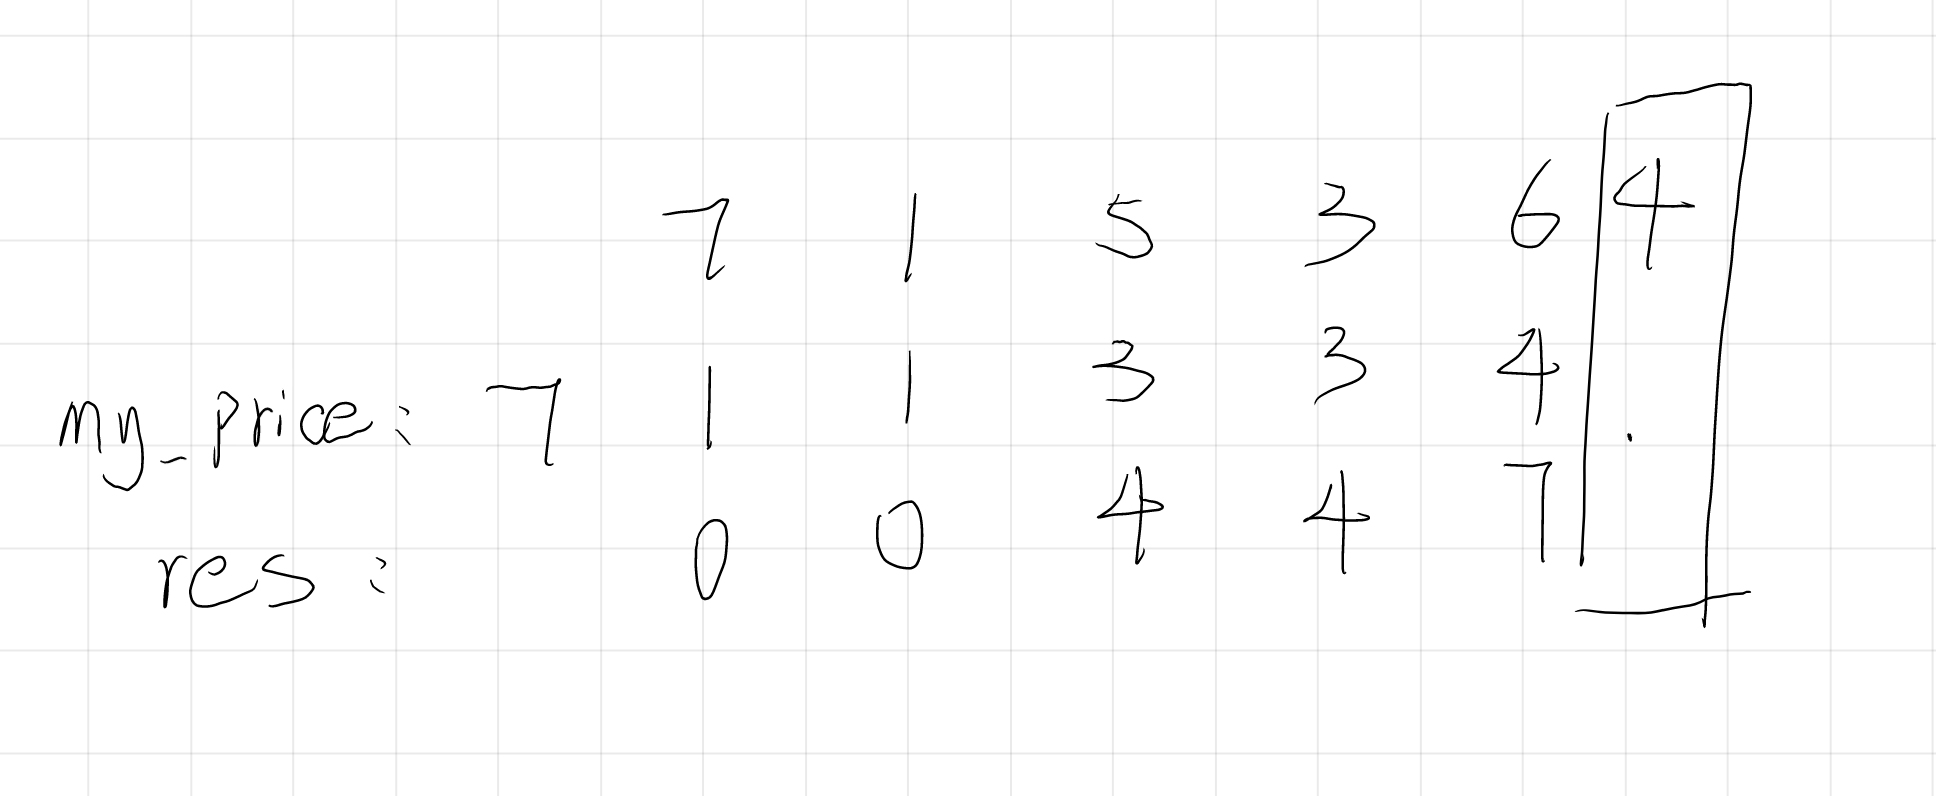 7 1 5 3 6 4
my_price: 7 1 1 3 3 4
res: 0 0 4 4 7